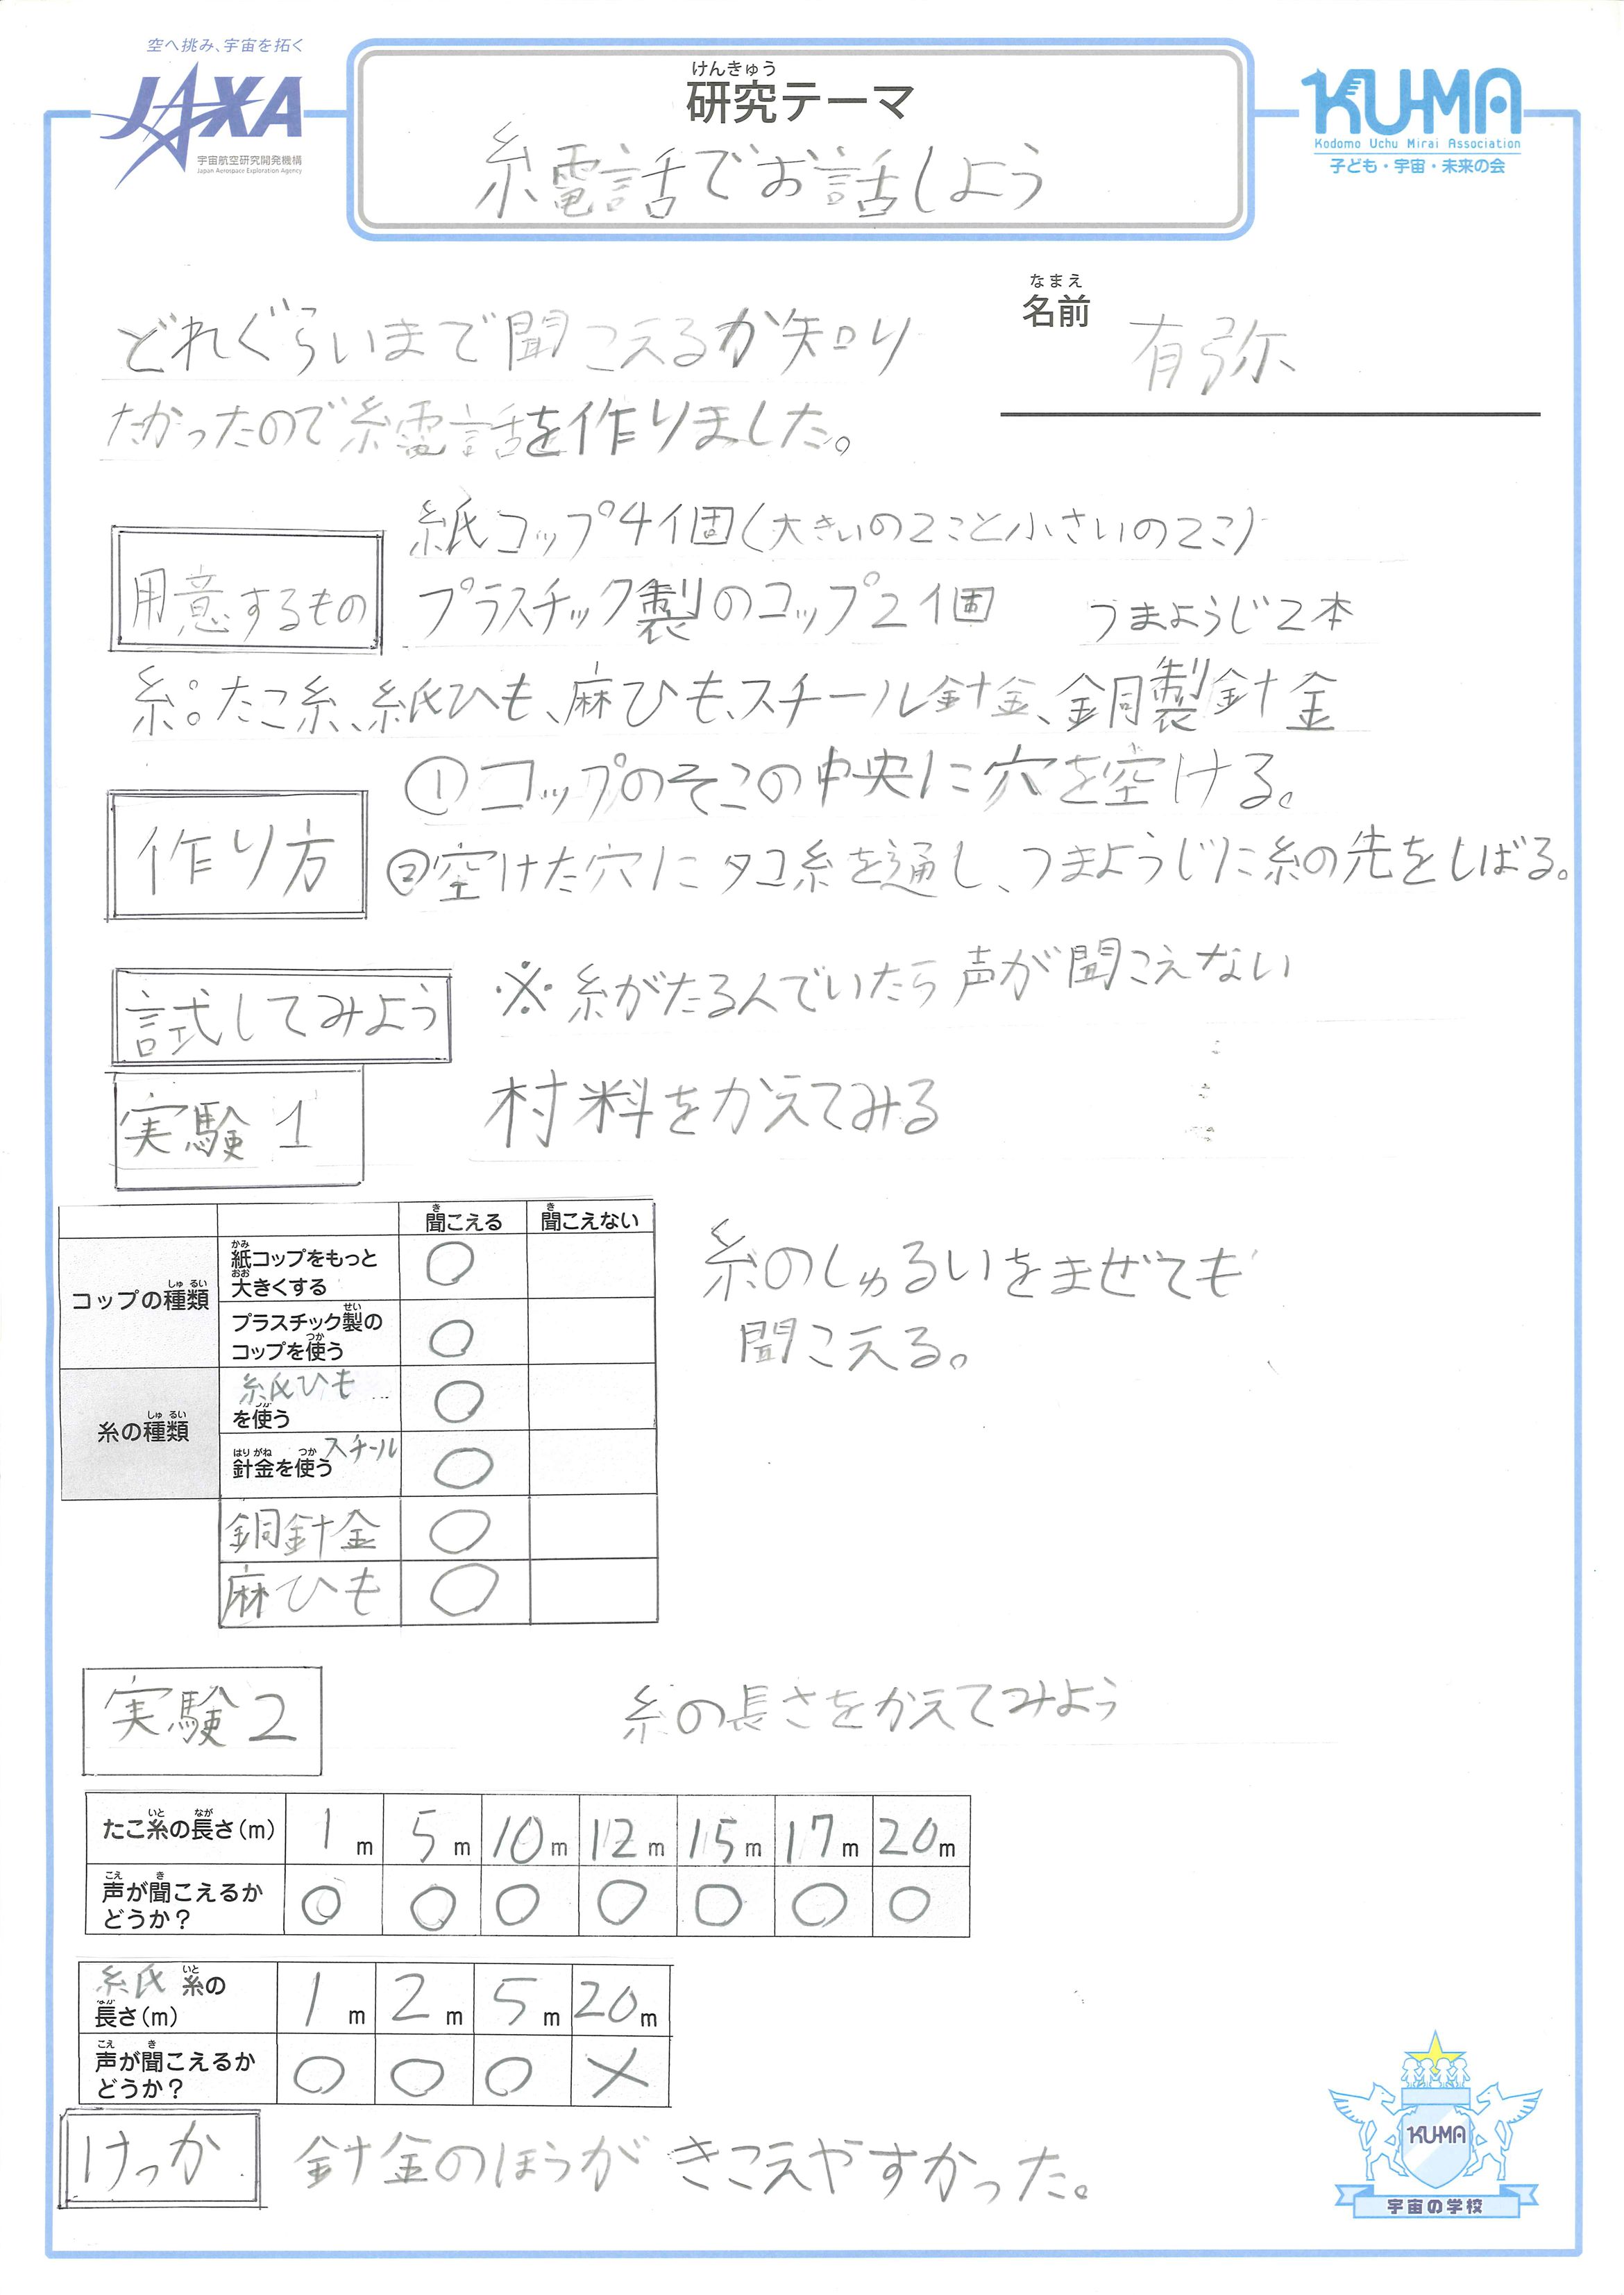 空へ挑み、宇宙を拓く
JAXA
宇宙航空研究開発機構
Japan Aerospace Exploration Agency
けんきゅう
研究テーマ
糸電話でお話しよう
KU-MA
Kodomo Uchu Mirai Association
子ども・宇宙・未来の会
なまえ
名前
有弥
どれぐらいまで聞こえるか知り
たかったので糸電話を作りました。
用意するもの
紙コップ4個(大きいの2こと小さいの2こ)
プラスチック製のコップ2個 つまようじ2本
糸。たこ糸、紙ひも、麻ひも、スチール針金、銅製針金
作り方
①コップのそこの中央に穴を空ける。
②空けた穴にタコ糸を通し、つまようじに糸の先をしばる。
試してみよう
※糸がたるんでいたら声が聞こえない
実験1
材料をかえてみる
聞こえる 聞こえない
コップの種類
紙コップをもっと
大きくする ○
プラスチック製の
コップを使う ○
糸の種類
紙ひも
を使う ○
針金を使う スチール ○
銅針金 ○
麻ひも ○
糸のしゅるいをまぜても
聞こえる。
実験2
糸の長さをかえてみよう
たこ糸の長さ(m) 1m 5m 10m 12m 15m 17m 20m
声が聞こえるか
どうか? ○ ○ ○ ○ ○ ○ ○
紙 糸の
長さ(m) 1m 2m 5m 20m
声が聞こえるか
どうか? ○ ○ ○ ×
けっか
針金のほうがきこえやすかった。
KU-MA
宇宙の学校